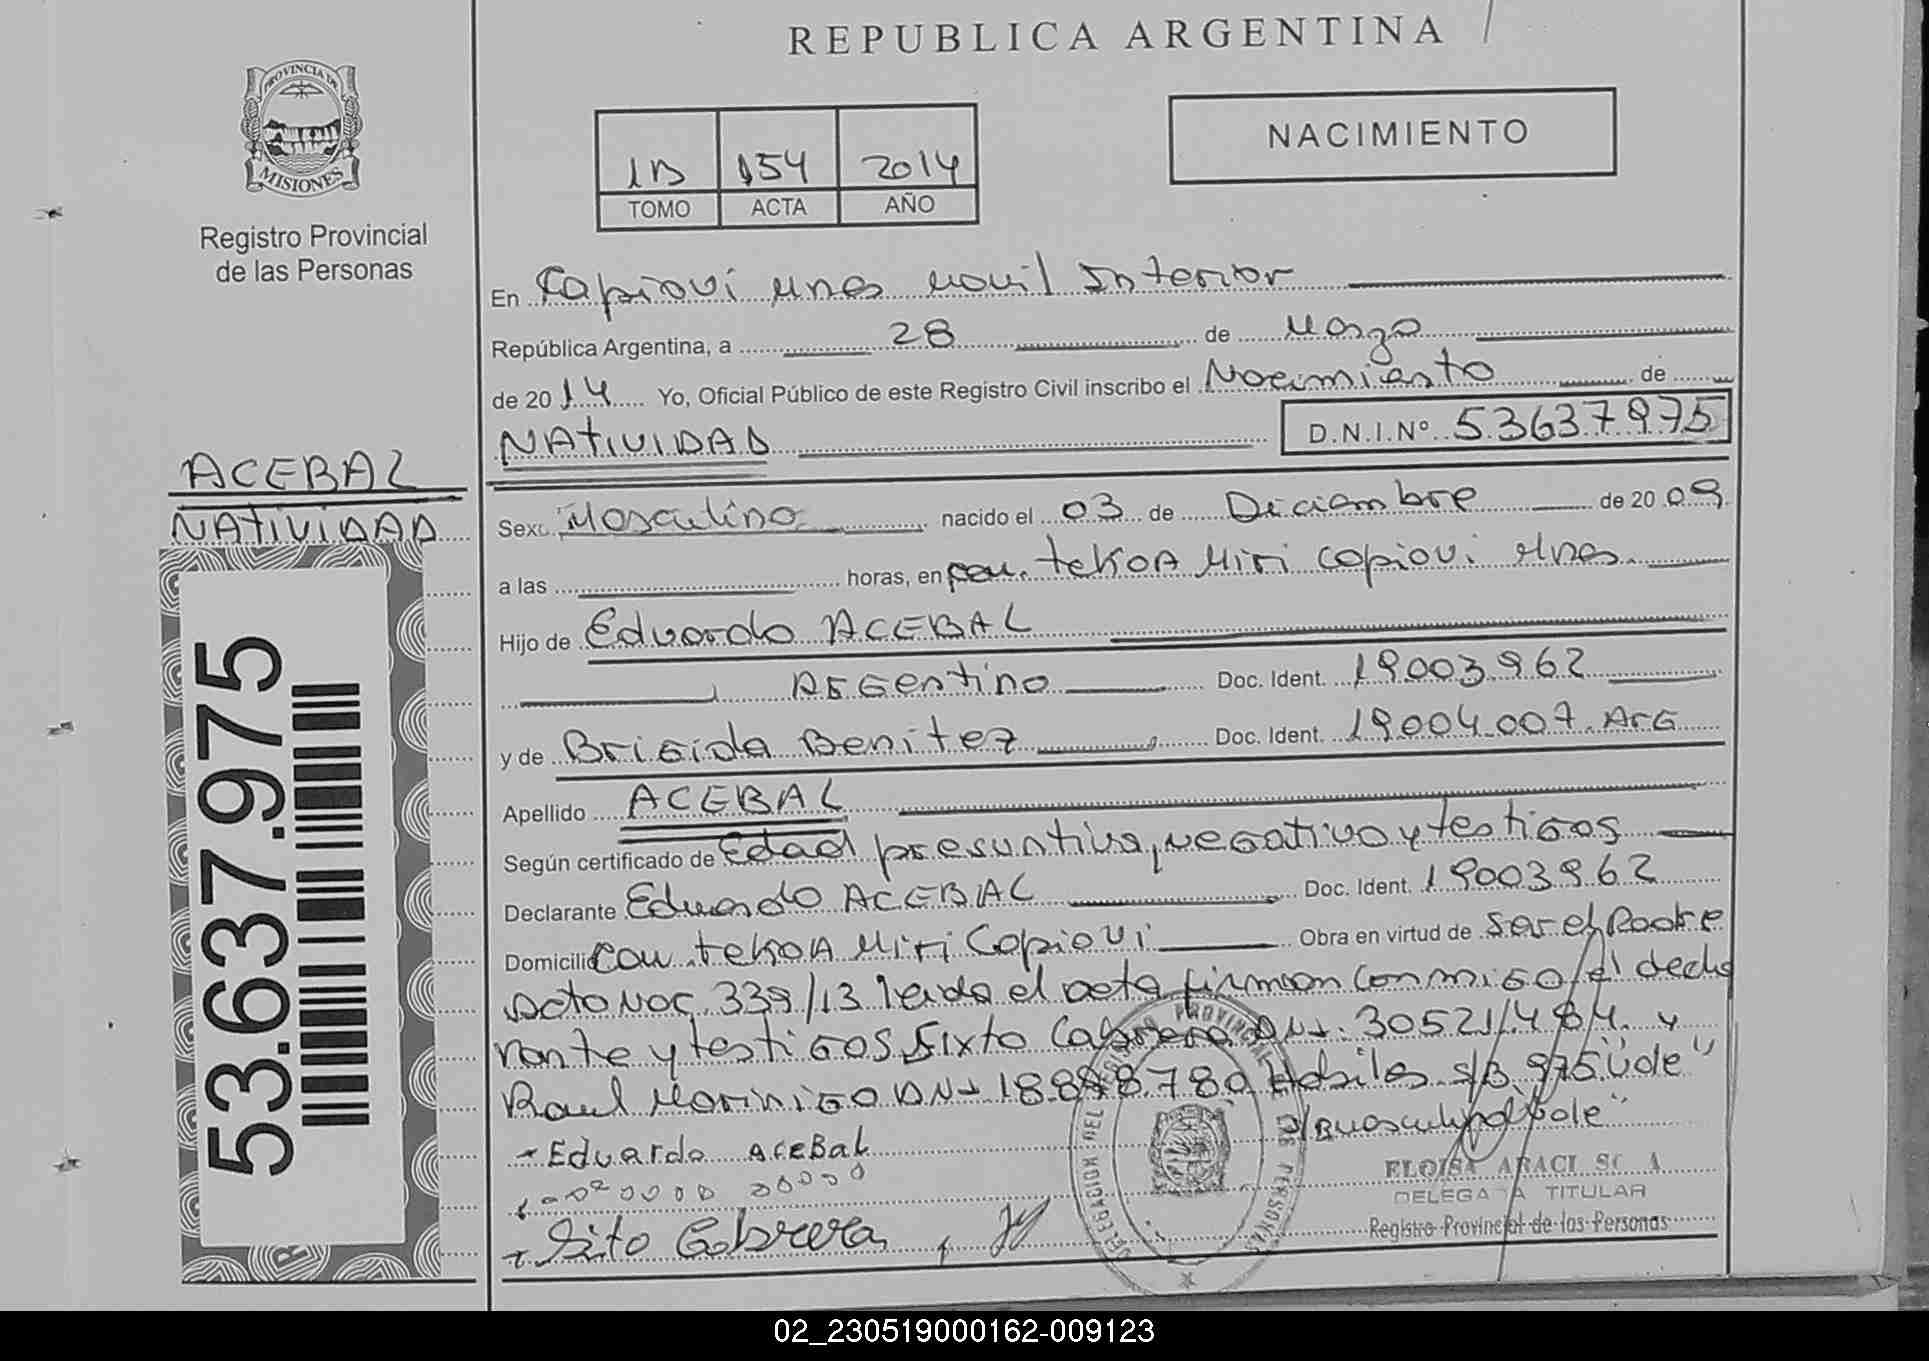 REPUBLICA ARGENTINA
PROVINCIA DE
MISIONES
Registro Provincial
de las Personas
1B 154 2014
TOMO ACTA AÑO
NACIMIENTO
En Capioví Mnes Movil Interior
República Argentina, a 28 de Marzo
de 2014 Yo, Oficial Público de este Registro Civil inscribo el Nacimiento de
NATIVIDAD D.N.I.Nº 53637975
ACEBAL
NATIVIDAD
53.637.975
Sexo Masculino nacido el 03 de Diciembre de 2009
a las horas, en Com. tekoA Miri Capiovi Mnes.
Hijo de Eduardo ACEBAL
Argentino Doc. Ident. 19003962
y de Brigida Benitez Doc. Ident. 19004.007. Arg
Apellido ACEBAL
Según certificado de Edad presuntiva, negativo y testigos
Declarante Eduardo ACEBAL Doc. Ident. 19003962
Domicilio Com. tekoA Miri Capiovi Obra en virtud de Ser el Padre
Dcto Nac. 339/13 leida el acta firman conmigo el decla
rante y testigos Sixto Cabrera DNI. 30521484. y
Raul Morinigo DNI 18.898.780 Habiles s/B 975 "Vale"
"Vale"
Eduardo ACEBAL
Sito Cabrera
DELEGACION DEL REGISTRO PROVINCIAL DE PERSONAS
ELOISA ARACI
DELEGADA TITULAR
Registro Provincial de las Personas
02_230519000162-009123